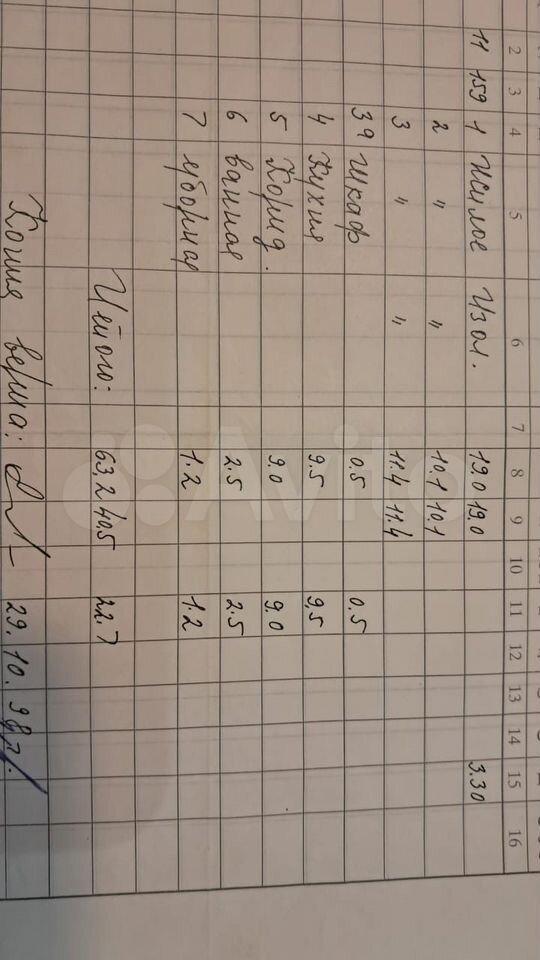 2 3 4 5 6 7 8 9 10 11 12 13 14 15 16
11 159 1 Жилое Изол. 19.0 19.0 3.30
2 " " 10.1 10.1
3 " " 11.4 11.4
3а шкаф 0.5 0.5
4 Кухня 9.5 9,5
5 Корид. 9.0 9.0
6 ванная 2.5 2.5
7 уборная 1.2 1.2
Итого: 63,2 40,5 22.7
Копия верна: 29.10.98г.
Avito